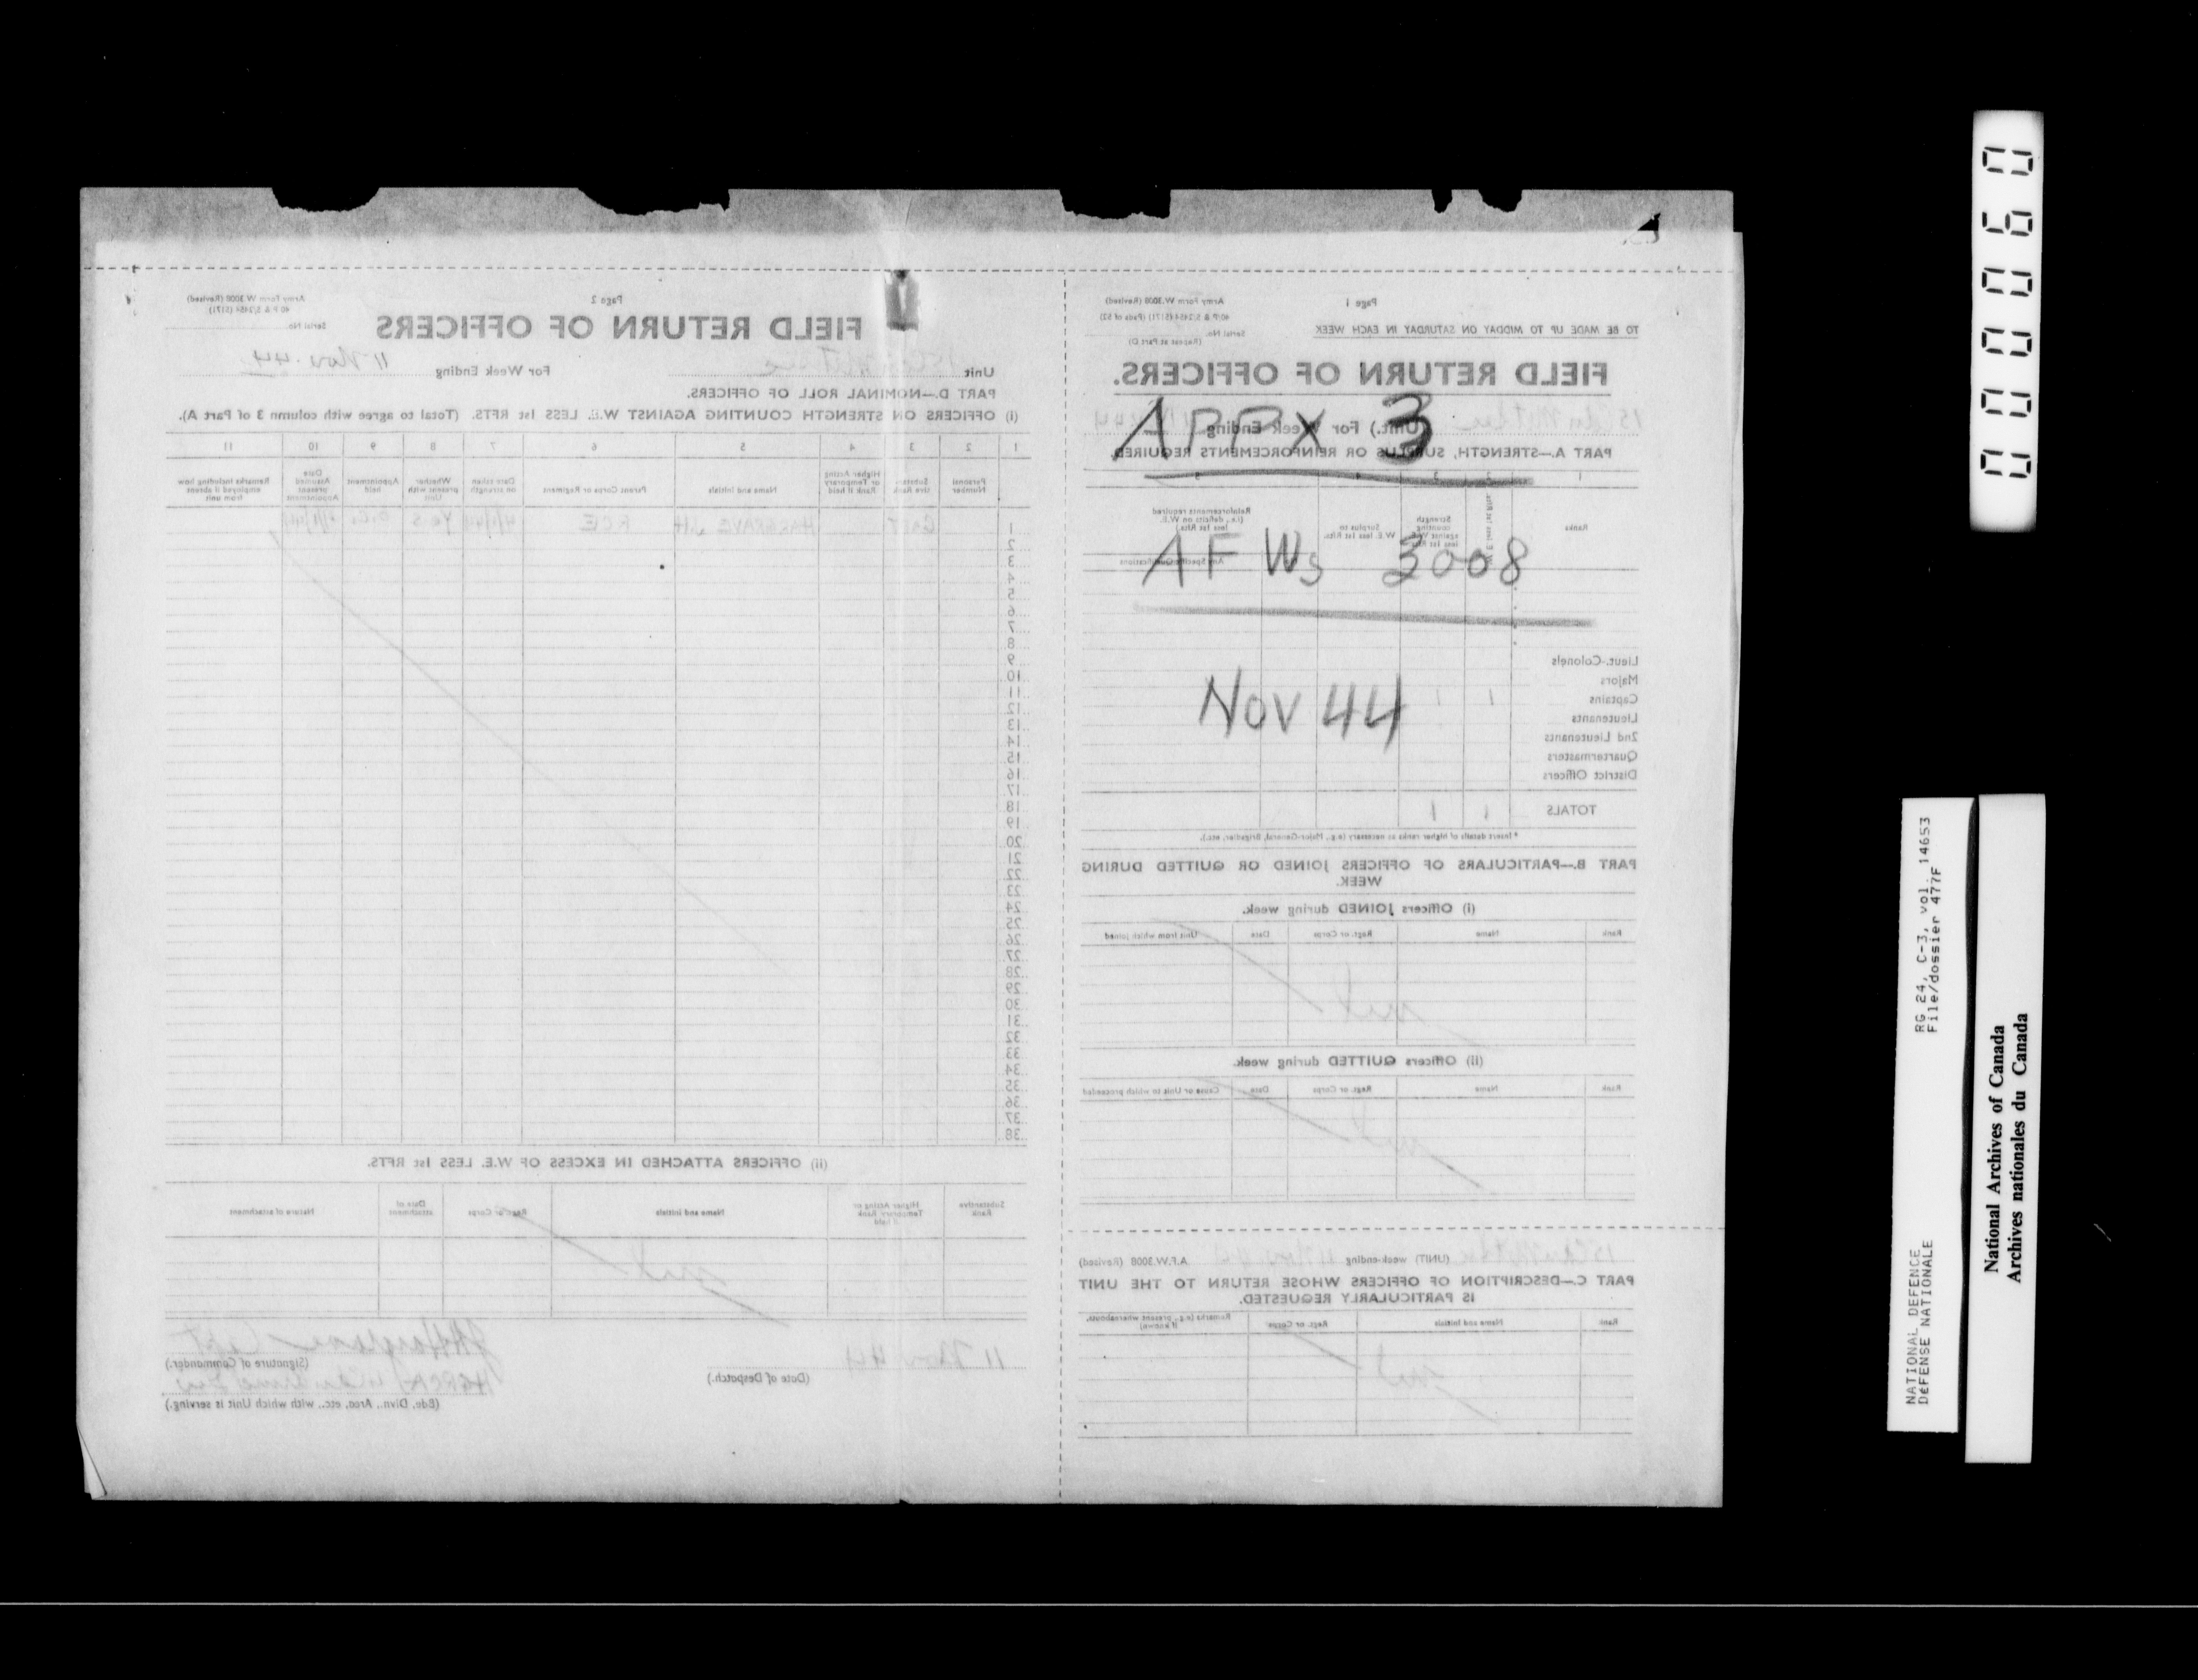 APPX 3
AF Ws 3008
Nov 44
Page 1
Army Form W.3008 (Revised)
TO BE MADE UP TO MIDDAY ON SATURDAY IN EACH WEEK
Serial No.
(Repeat at Part D)
FIELD RETURN OF OFFICERS.
(Unit.) For Week Ending
PART A.—STRENGTH, SURPLUS OR REINFORCEMENTS REQUIRED.
Ranks
Lieut.-Colonels
Majors
Captains 1 1
Lieutenants
2nd Lieutenants
Quartermasters
District Officers
TOTALS 1 1
* Insert details of higher ranks as necessary (e.g., Major-General, Brigadier, etc.).
PART B.—PARTICULARS OF OFFICERS JOINED OR QUITTED DURING
WEEK.
(i) Officers JOINED during week.
Rank Name Regt. or Corps Date Unit from which joined
nil
(ii) Officers QUITTED during week.
Rank Name Regt. or Corps Date Cause or Unit to which proceeded
nil
(UNIT) week-ending 11 Nov 44 A.F.W.3008 (Revised)
PART C.—DESCRIPTION OF OFFICERS WHOSE RETURN TO THE UNIT
IS PARTICULARLY REQUESTED.
Rank Name and Initials Regt. or Corps Remarks (e.g., present whereabouts, if known)
nil
Page 2
Army Form W.3008 (Revised)
Serial No.
FIELD RETURN OF OFFICERS
Unit
For Week Ending 11 Nov 44
PART D.—NOMINAL ROLL OF OFFICERS.
(i) OFFICERS ON STRENGTH COUNTING AGAINST W.E. LESS 1st RFTS. (Total to agree with column 3 of Part A).
1 2 3 4 5 6 7 8 9 10 11
Personal Number
Substantive Rank
Higher Acting or Temporary Rank if held
Name and Initials
Parent Corps or Regiment
Date taken on strength
Whether present with Unit
Appointment held
Date Assumed present Appointment
Remarks including how employed if absent from unit
1 CAPT HARGRAVE JH RCE Yes O.C.
2
3
4
5
6
7
8
9
10
11
12
13
14
15
16
17
18
19
20
21
22
23
24
25
26
27
28
29
30
31
32
33
34
35
36
37
38
(ii) OFFICERS ATTACHED IN EXCESS OF W.E. LESS 1st RFTS.
Substantive Rank
Higher Acting or Temporary Rank if held
Name and Initials
Regt. or Corps
Date of attachment
Nature of attachment
nil
11 Nov 44
(Date of Despatch.)
JH Hargrave Capt
(Signature of Commander.)
(Bde, Divn., Area, etc., with which Unit is serving.)
000060
NATIONAL DEFENCE
DÉFENSE NATIONALE
RG 24, C-3, vol. 14653
File/dossier 477F
National Archives of Canada
Archives nationales du Canada